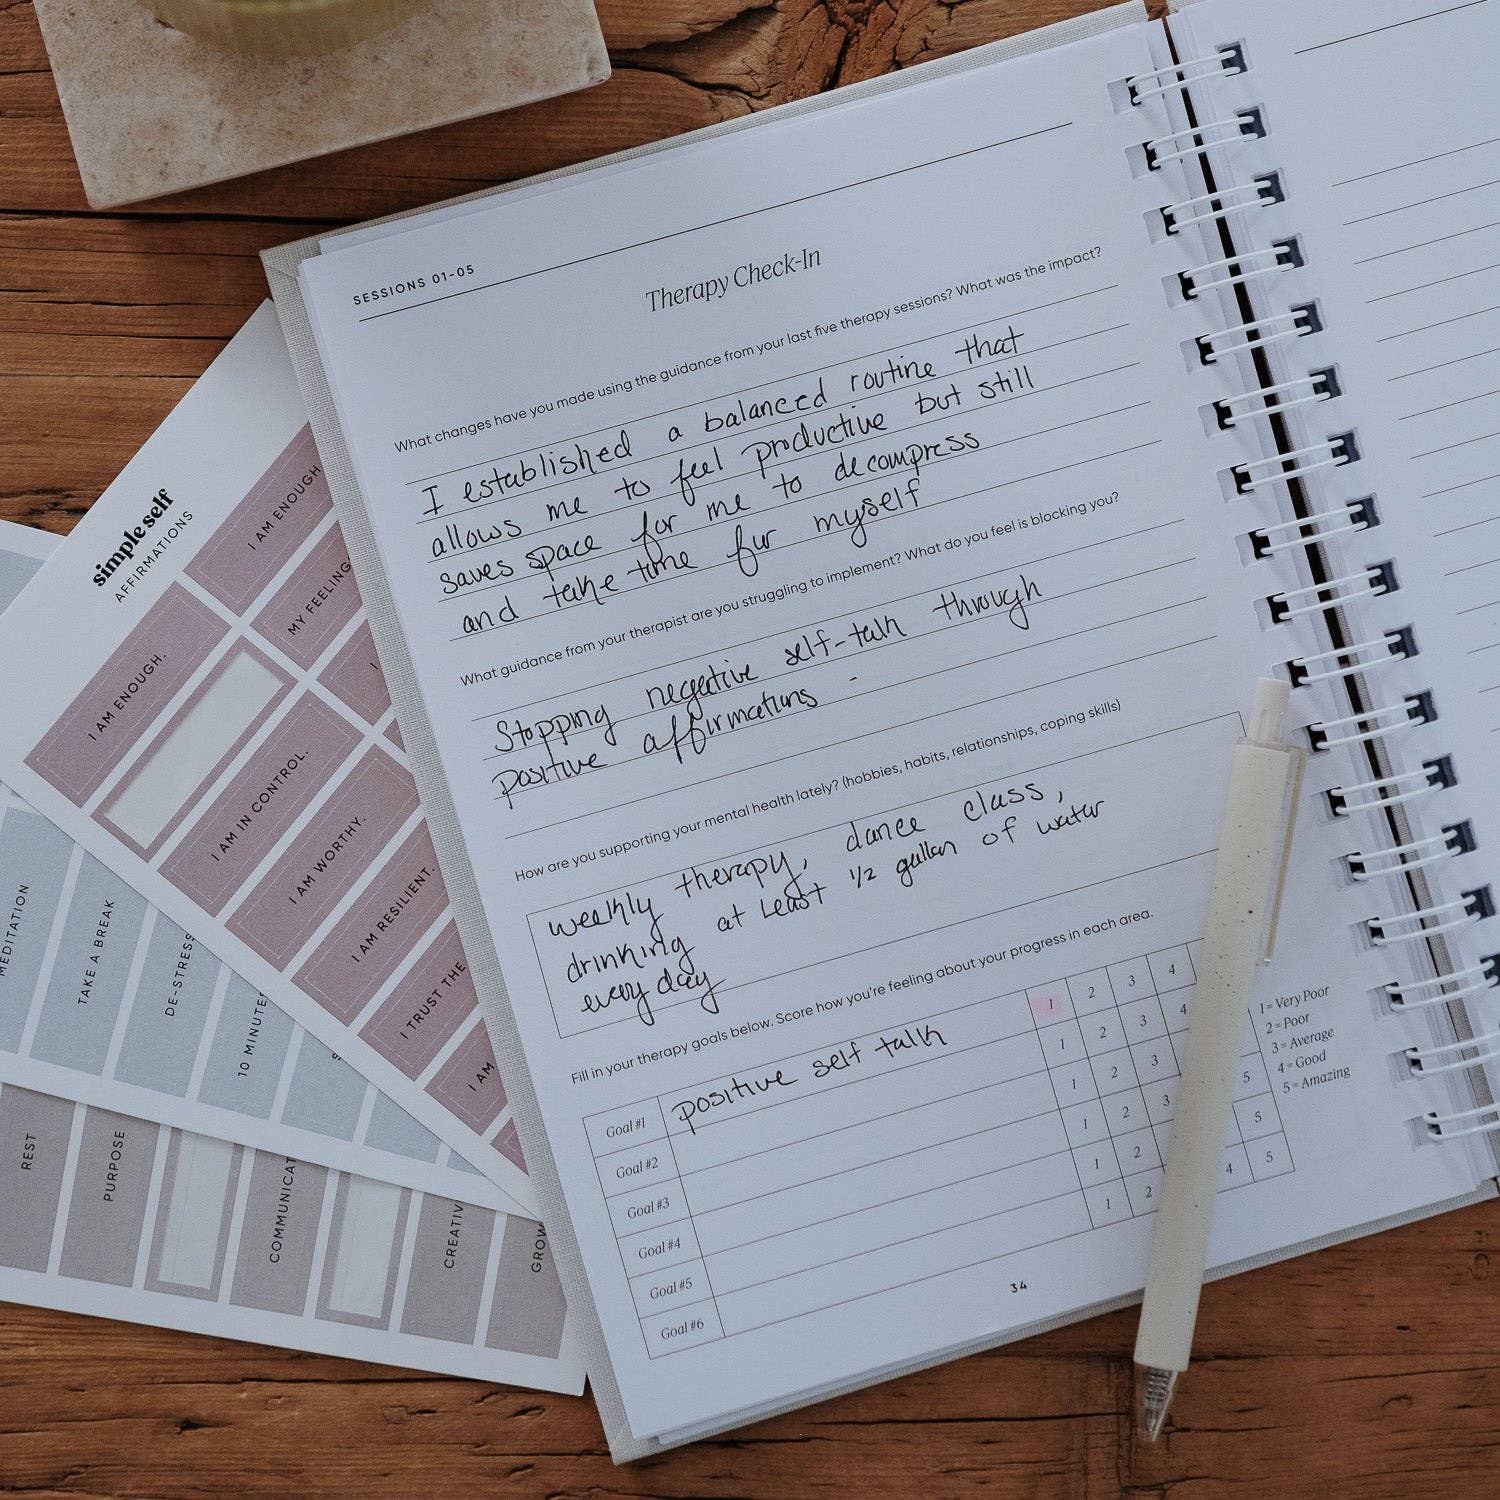 SESSIONS 01-05
Therapy Check-In
What changes have you made using the guidance from your last five therapy sessions? What was the impact?
I established a balanced routine that
allows me to feel productive but still
saves space for me to decompress
and take time for myself
What guidance from your therapist are you struggling to implement? What do you feel is blocking you?
Stopping negative self-talk through
positive affirmations -
How are you supporting your mental health lately? (hobbies, habits, relationships, coping skills)
weekly therapy, dance class,
drinking at least 1/2 gallon of water
every day
Fill in your therapy goals below. Score how you're feeling about your progress in each area.
Goal #1 positive self talk 1 2 3 4
Goal #2 1 2 3 4
Goal #3 1 2 3 5
Goal #4 1 2 3 5
Goal #5 1 2 4 5
Goal #6 1 2
1 = Very Poor
2 = Poor
3 = Average
4 = Good
5 = Amazing
34
simple self
AFFIRMATIONS
I AM ENOUGH.
I AM IN CONTROL.
I AM WORTHY.
I AM RESILIENT.
I TRUST THE
I AM
I AM ENOUGH
MY FEELING
I
MEDITATION
TAKE A BREAK
DE-STRESS
10 MINUTE
REST
PURPOSE
COMMUNICAT
CREATIV
GROW